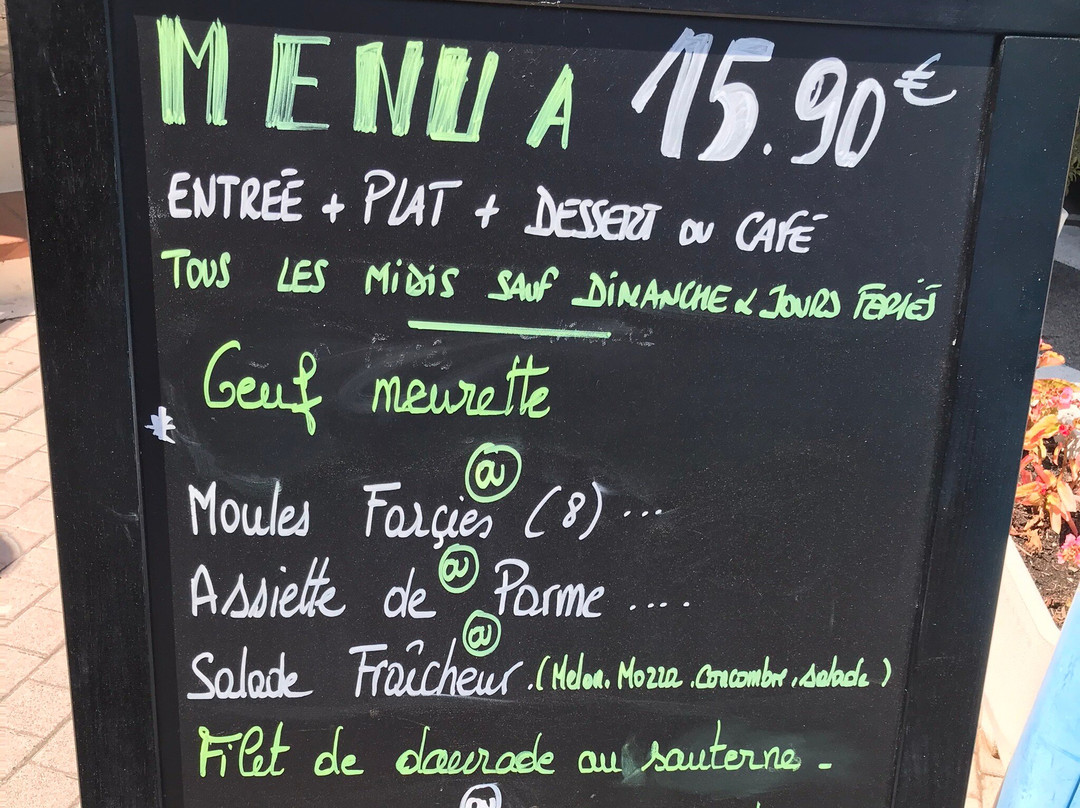 MENU A 15.90€
ENTREÉ + PLAT + DESSERT OU CAFÉ
TOUS LES MIDIS SAUF DIMANCHE & JOURS FERIÉS
Oeuf meurette
ou
* Moules Farçies (8) ...
ou
Assiette de Parme ....
ou
Salade Fraîcheur. (Melon. Mozza. Concombre. salade)
Filet de daurade au sauterne -
ou